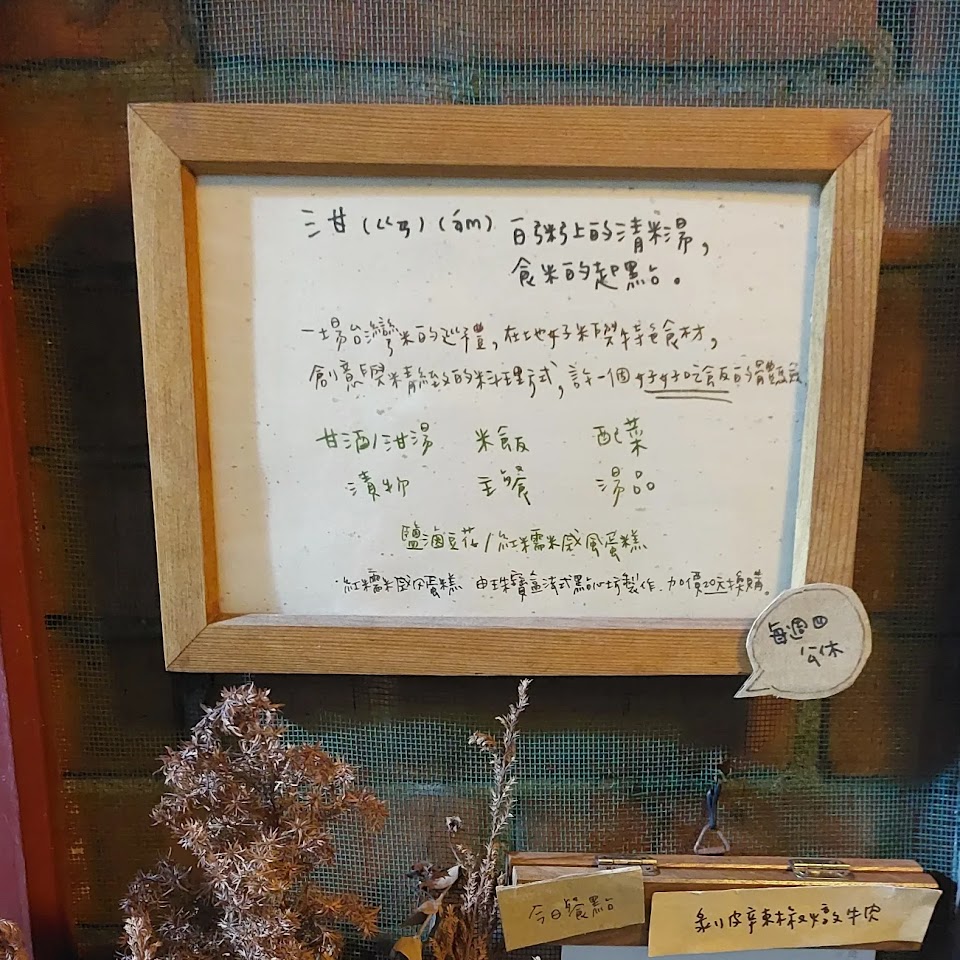 泔 (ㄍㄢ) (ám) 白粥上的清米湯,
食米的起點。
一場台灣米的巡禮,在地好米與特色食材,
創意與精緻的料理方式,許一個好好吃飯的體驗
甘酒/泔湯 米飯 配菜
漬物 主餐 湯品
鹽滷豆花/紅糯米戚風蛋糕
紅糯米戚風蛋糕 由珠寶盒法式點心坊製作.加價20元換購。
每週四
公休
今日餐點
剝皮辣椒燉牛肉